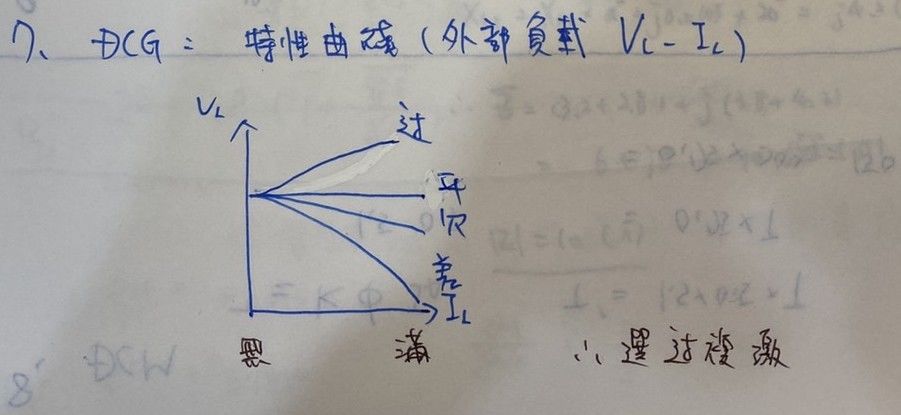 7、DCG：特性曲線（外部負載 VL-IL）
VL
过
平
欠
差
IL
無 滿 ∴選过複激